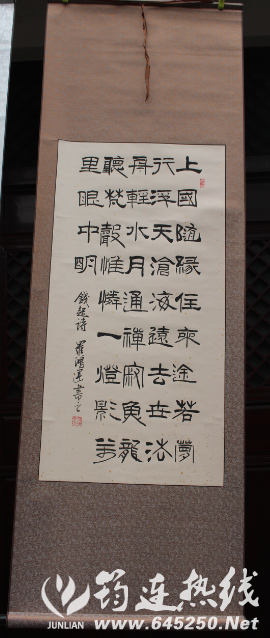 上國隨緣住來途若夢
行浮天滄海遠去世法
舟輕水月通禪寂魚龍
聽梵聲惟憐一燈影萬
里眼中明
錢起詩 羅鴻書之
筠连热线
JUNLIAN www.645250.Net